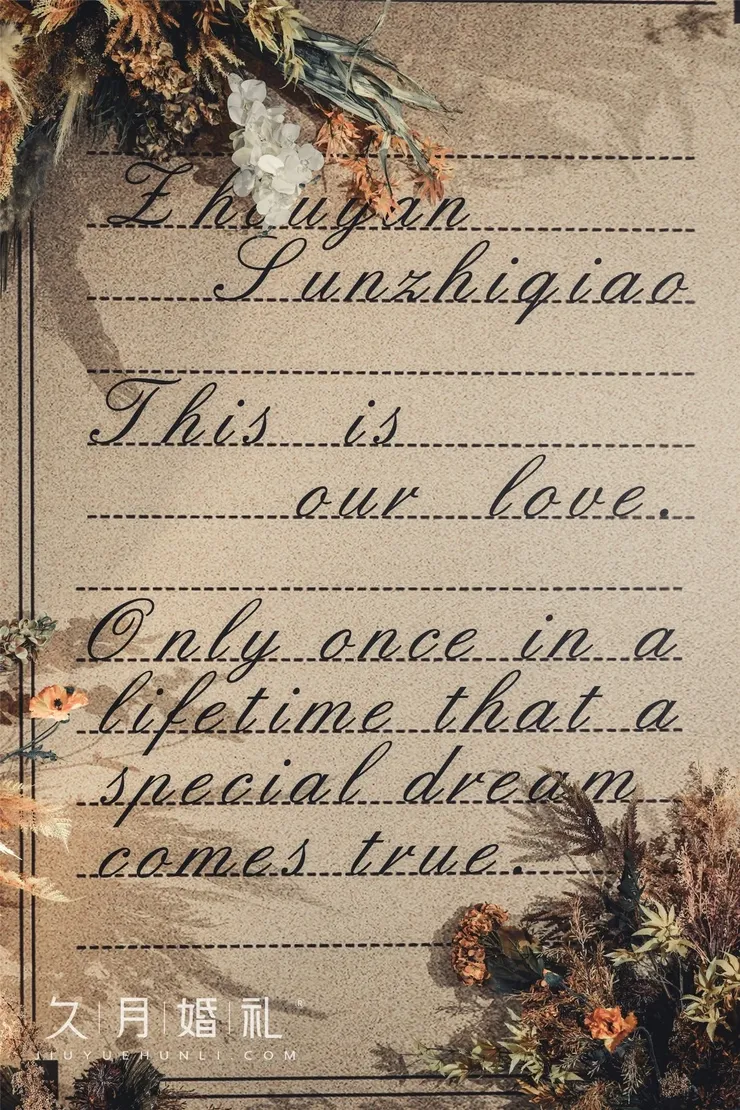 Zhouyan
Sunzhiqiao
This is
our love.
Only once in a
lifetime that a
special dream
comes true.
久月婚礼®
JIUYUEHUNLI.COM